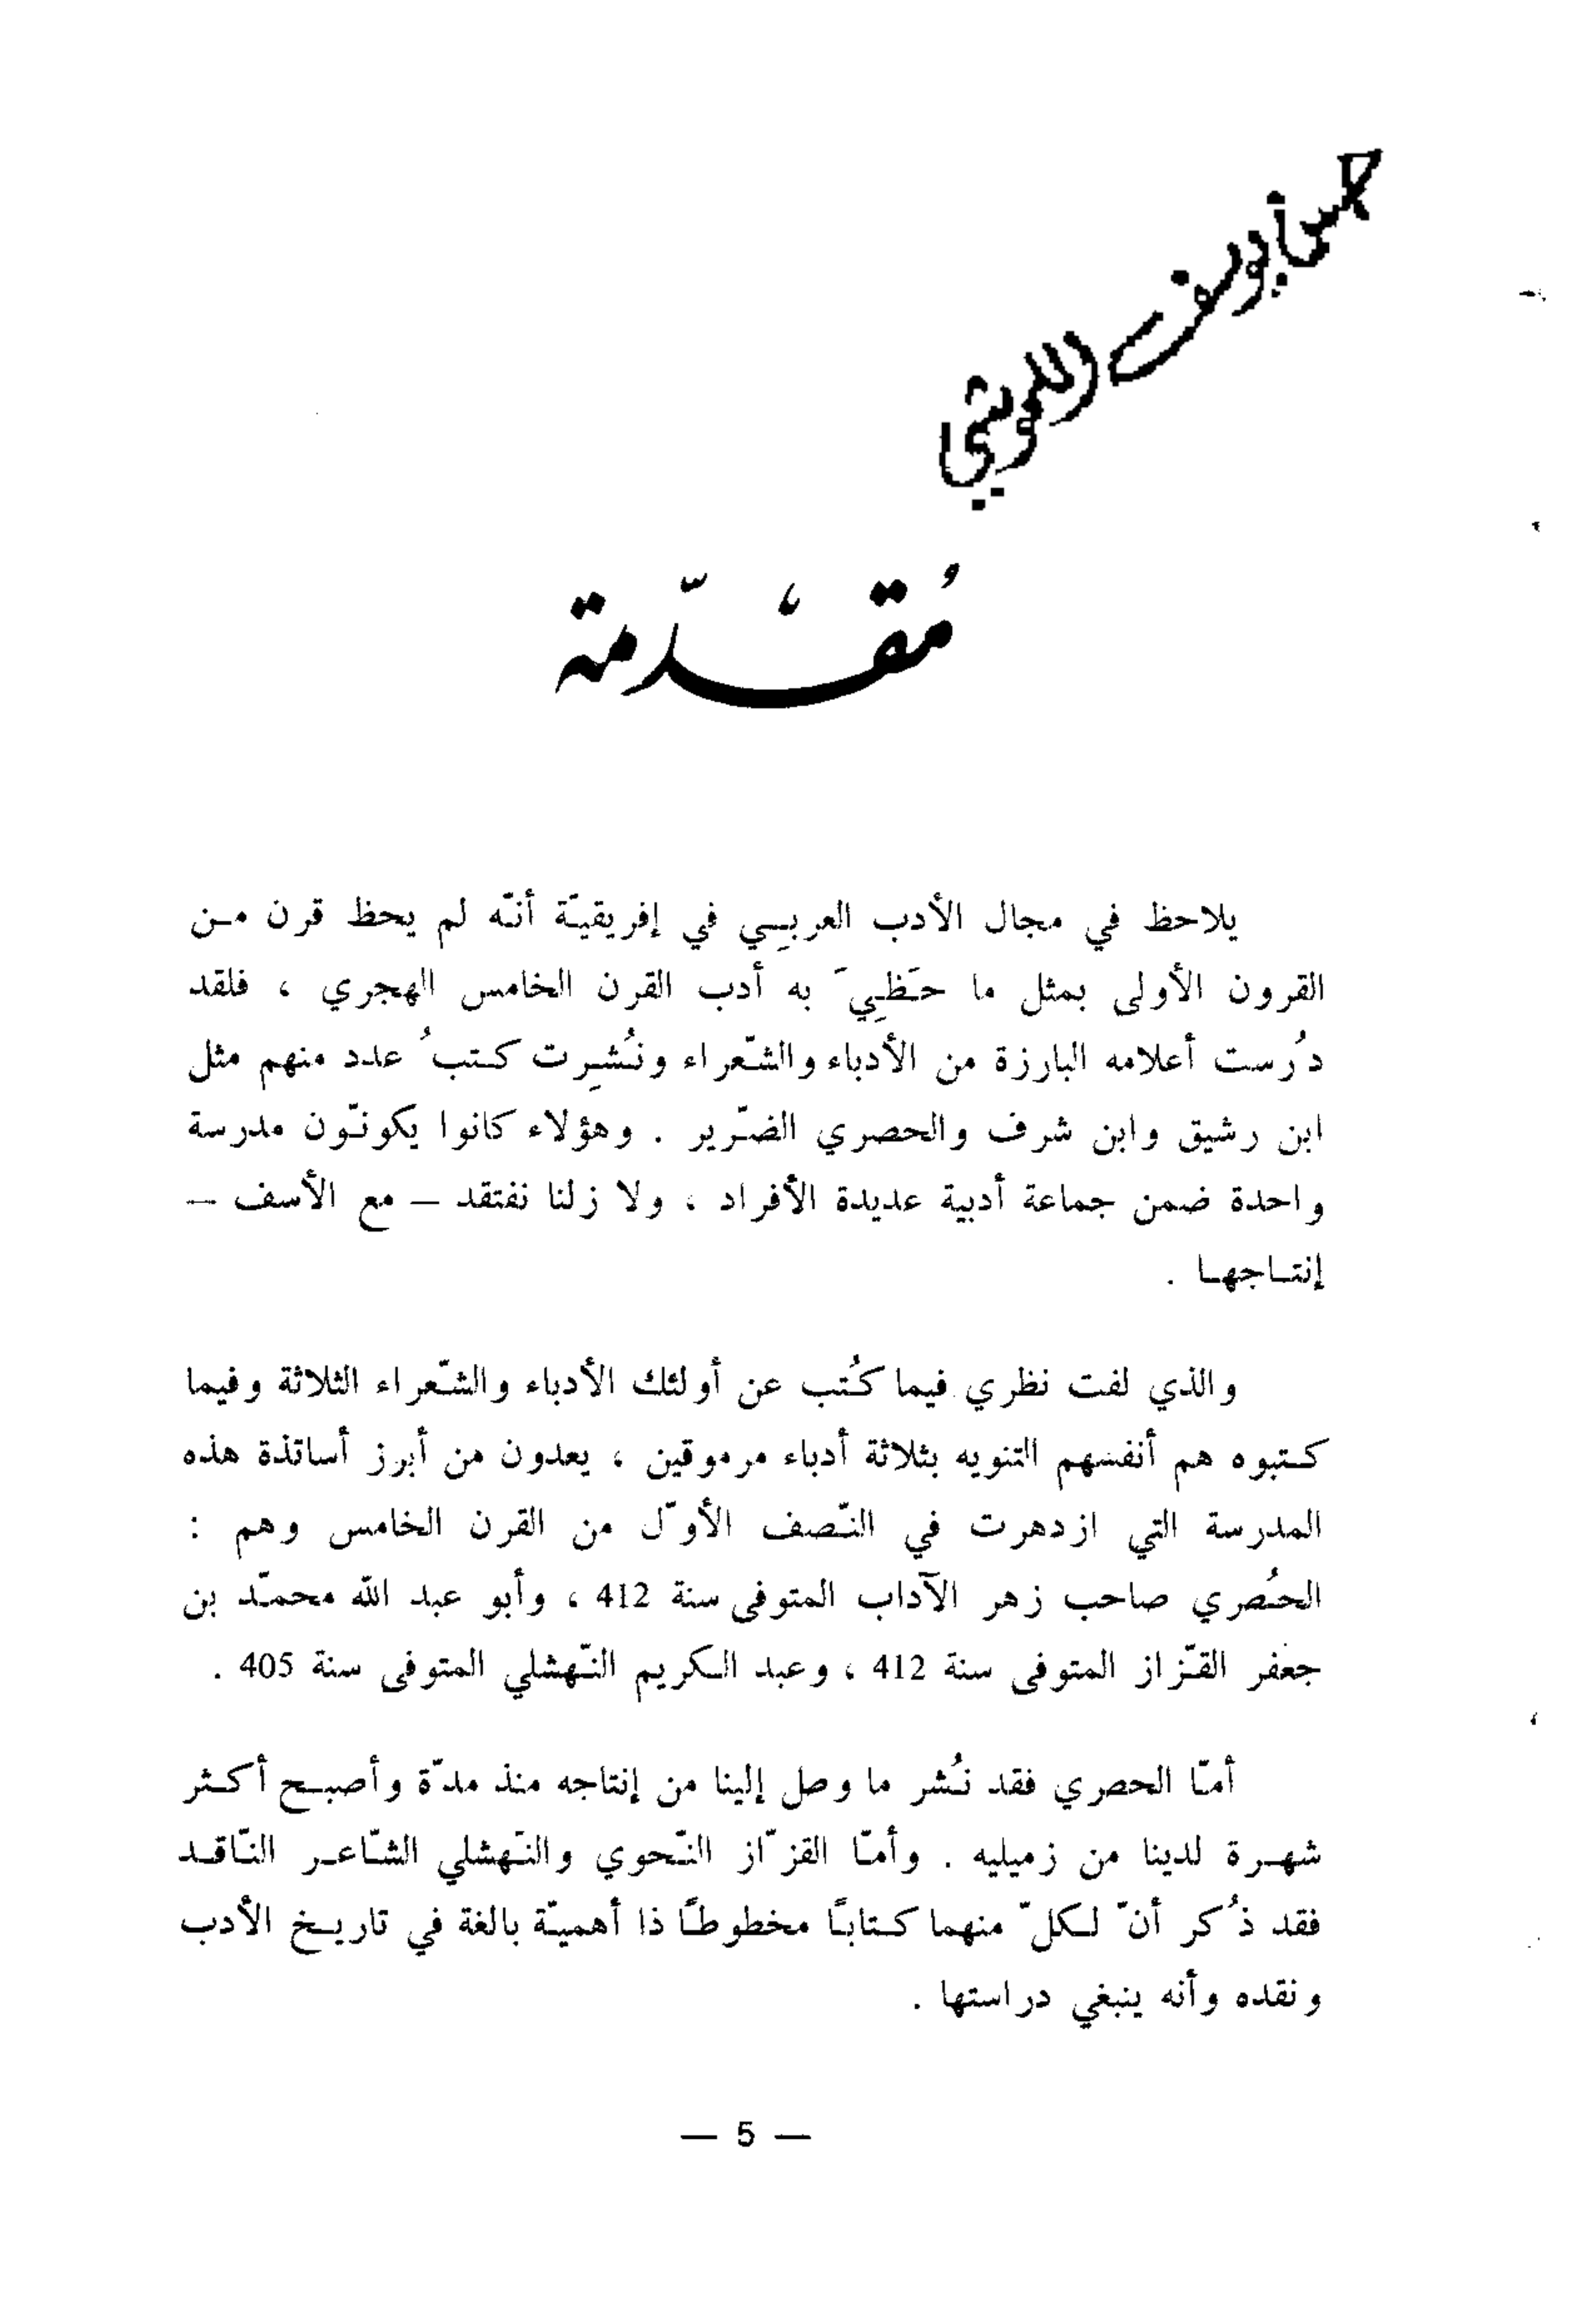 مُقَدّمة
يلاحظ في مجال الأدب العربِي في إفريقيّة أنّه لم يحظ قرن من
القرون الأولى بمثل ما حَظِيَ به أدب القرن الخامس الهجري ، فلقد
دُرست أعلامه البارزة من الأدباء والشّعراء ونُشِرت كتبُ عدد منهم مثل
ابن رشيق وابن شرف والحصري الضّرير . وهؤلاء كانوا يكونّون مدرسة
واحدة ضمن جماعة أدبية عديدة الأفراد ، ولا زلنا نفتقد – مع الأسف –
إنتاجها .
والذي لفت نظري فيما كُتب عن أولئك الأدباء والشّعراء الثلاثة وفيما
كتبوه هم أنفسهم التنويه بثلاثة أدباء مرموقين ، يعدون من أبرز أساتذة هذه
المدرسة التي ازدهرت في النّصف الأوّل من القرن الخامس وهم :
الحُصري صاحب زهر الآداب المتوفى سنة 412 ، وأبو عبد الله محمّد بن
جعفر القزّاز المتوفى سنة 412 ، وعبد الكريم النّهشلي المتوفى سنة 405 .
أمّا الحصري فقد نُشر ما وصل إلينا من إنتاجه منذ مدّة وأصبح أكثر
شهرة لدينا من زميليه . وأمّا القزّاز النّحوي والنّهشلي الشّاعر النّاقد
فقد ذُكر أنّ لكلّ منهما كتابًا مخطوطًا ذا أهميّة بالغة في تاريخ الأدب
ونقده وأنه ينبغي دراستها .
— 5 —